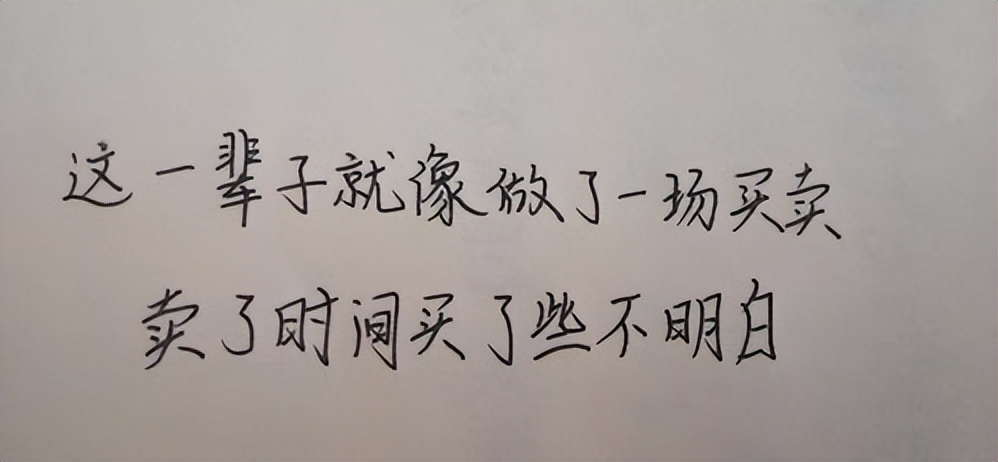 这一辈子就像做了一场买卖
卖了时间买了些不明白